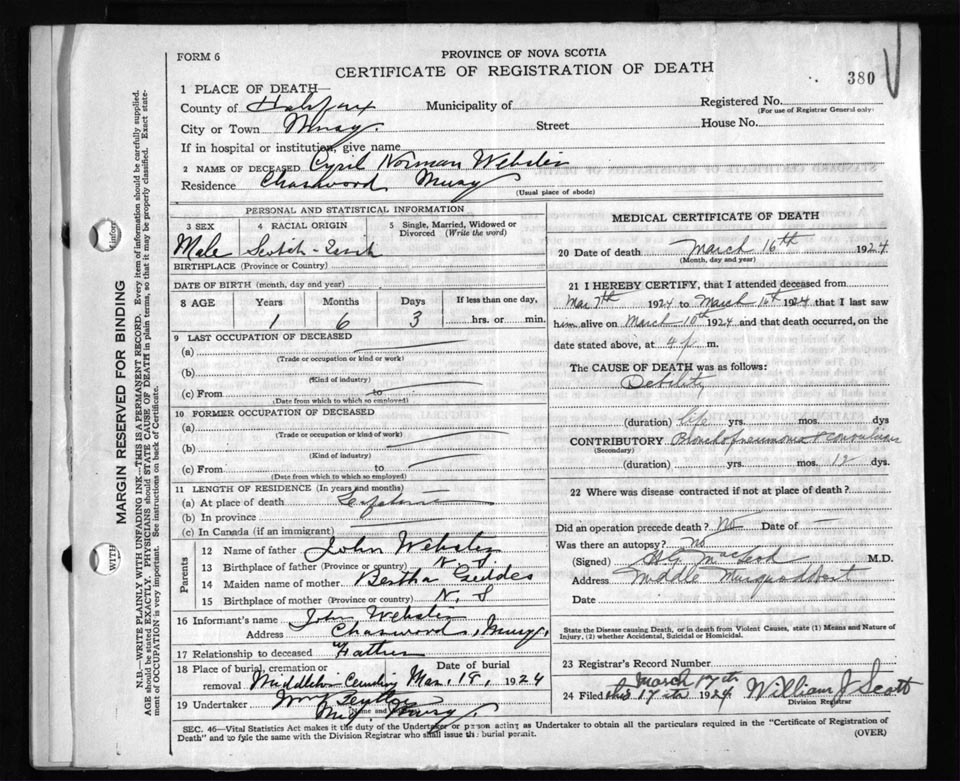 FORM 6
PROVINCE OF NOVA SCOTIA
CERTIFICATE OF REGISTRATION OF DEATH
380
1 PLACE OF DEATH—
County of Halifax Municipality of Registered No.
(For use of Registrar General only)
City or Town Musq. Street House No.
If in hospital or institution, give name
2 NAME OF DECEASED Cyril Norman Webster
Residence Chaswood Musq
(Usual place of abode)
PERSONAL AND STATISTICAL INFORMATION
3 SEX 4 RACIAL ORIGIN 5 Single, Married, Widowed or Divorced (Write the word)
Male Scotch-Irish
BIRTHPLACE (Province or Country)
DATE OF BIRTH (month, day and year)
8 AGE Years Months Days If less than one day,
1 6 3 hrs. or min.
9 LAST OCCUPATION OF DECEASED
(a)
(Trade or occupation or kind of work)
(b)
(Kind of industry)
(c) From to
(Date from which to which so employed)
10 FORMER OCCUPATION OF DECEASED
(a)
(Trade or occupation or kind of work)
(b)
(Kind of industry)
(c) From to
(Date from which to which so employed)
11 LENGTH OF RESIDENCE (In years and months)
(a) At place of death Lifetime
(b) In province
(c) In Canada (if an immigrant)
Parents
12 Name of father John Webster
13 Birthplace of father (Province or country) N. S
14 Maiden name of mother Bertha Geddes
15 Birthplace of mother (Province or country) N. S
16 Informant's name John Webster
Address Chaswood, Musq.
17 Relationship to deceased Father
18 Place of burial, cremation or removal Date of burial Mar. 18, 1924
19 Undertaker
Name and
SEC. 46—Vital Statistics Act makes it the duty of the Undertaker or person acting as Undertaker to obtain all the particulars required in the "Certificate of Registration of
Death" and to file the same with the Division Registrar who shall issue the burial permit. (OVER)
MEDICAL CERTIFICATE OF DEATH
20 Date of death March 16th 1924
(Month, day and year)
21 I HEREBY CERTIFY, that I attended deceased from
Mar 7th 1924 to March 16th 1924 that I last saw
him alive on March 10th 1924 and that death occurred, on the
date stated above, at 4 p m.
The CAUSE OF DEATH was as follows:
Debility
(duration) life yrs. mos. dys
CONTRIBUTORY Bronchopneumonia & Convulsions
(Secondary)
(duration) yrs. mos. 12 dys.
22 Where was disease contracted if not at place of death?
Did an operation precede death? No Date of —
Was there an autopsy? No
(Signed) MacLeod M.D.
Address Middle Musquodoboit
Date
State the Disease causing Death, or in death from Violent Causes, state (1) Means and Nature of
Injury, (2) whether Accidental, Suicidal or Homicidal.
23 Registrar's Record Number
March 17th
24 Filed this 17th 1924 William J Scott
Division Registrar
MARGIN RESERVED FOR BINDING
N.B.—WRITE PLAINLY WITH UNFADING INK—THIS IS A PERMANENT RECORD. Every item of information should be carefully supplied.
AGE should be stated EXACTLY. PHYSICIANS should STATE CAUSE OF DEATH in plain terms, so that it may be properly classified. Exact statement
of OCCUPATION is very important. See instructions on back of Certificate.
WITH